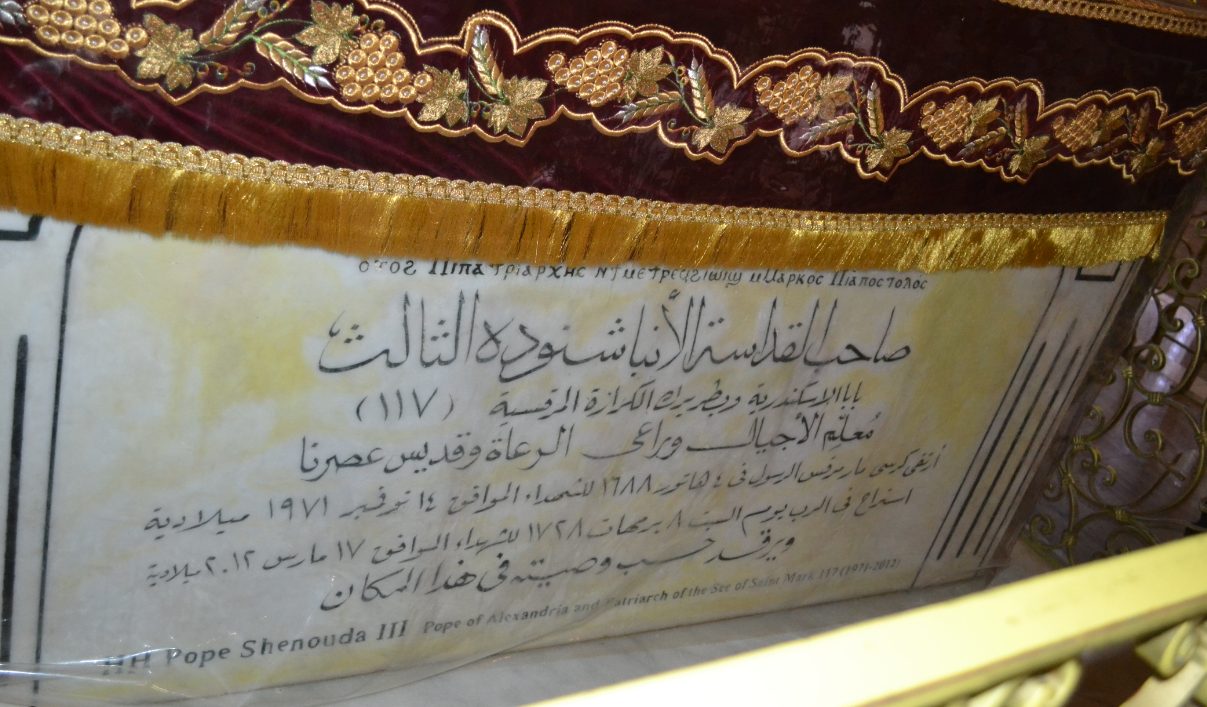 ⲟⲩⲟϩ Ⲡⲓⲡⲁⲧⲣⲓⲁⲣⲭⲏⲥ ⲛϯⲙⲉⲧⲣⲉϥϩⲓⲱⲓϣ ⲙⲘⲁⲣⲕⲟⲥ Ⲡⲓⲁⲡⲟⲥⲧⲟⲗⲟⲥ
صاحب القداسة الأنبا شنوده الثالث
بابا الاسكندرية وبطريرك الكرازة المرقسية (١١٧)
مُعلّم الأجيال وراعى الرعاة وقديس عصرنا
أرتقى كرسى مارمرقس الرسول فى ٤ هاتور ١٦٨٨ للشهداء الموافق ١٤ نوفمبر ١٩٧١ ميلادية
استراح فى الرب يوم السبت ٨ برمهات ١٧٢٨ للشهداء الموافق ١٧ مارس ٢٠١٢ ميلادية
ويرقد حسب وصيته فى هذا المكان
HH Pope Shenouda III Pope of Alexandria and Patriarch of the See of Saint Mark 117 (1971-2012)